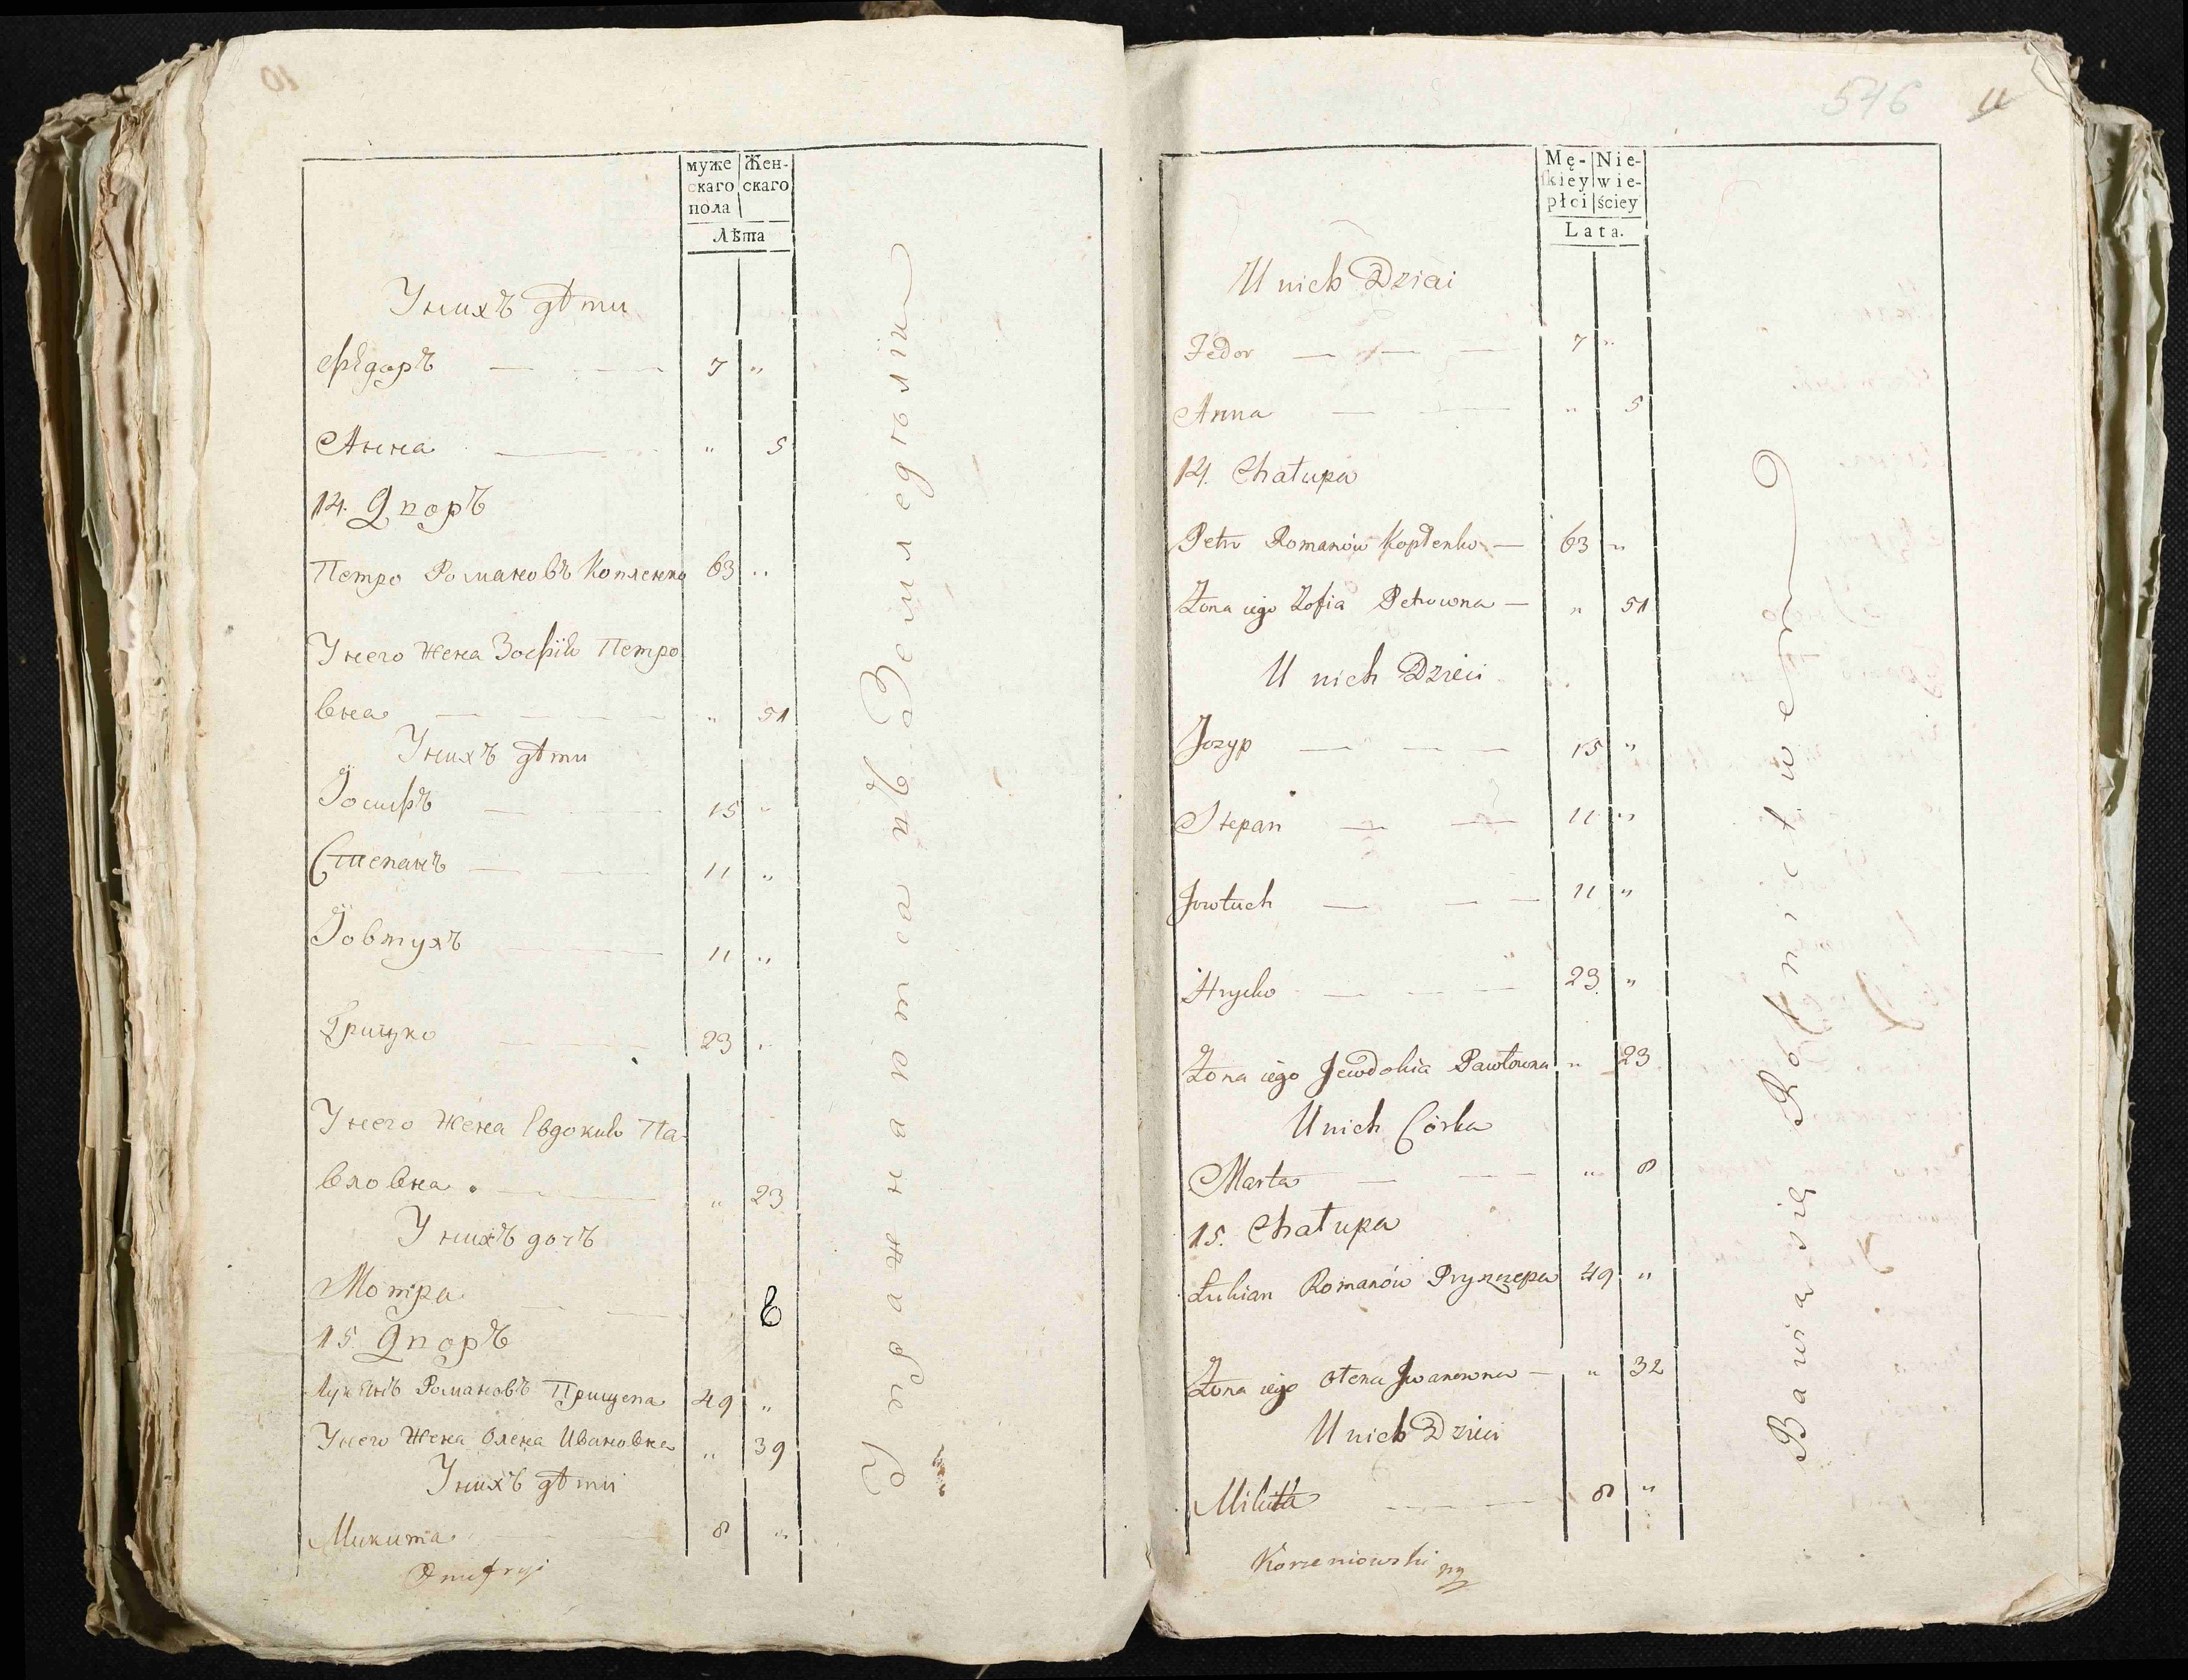 10
муже Жен-
скаго скаго
пола
Лѣта
У нихъ дѣти
Ѳѣдоръ 7 „
Анна „ 5
14. Дворъ
Петро Романовъ Копленко 63 „
У него Жена Зофія Петро
вна „ 51
У нихъ дѣти
Іосифъ 15 „
Степанъ 11 „
Іовтухъ 11 „
Грицко 23 „
У него Жена Евдокия Па-
вловна „ 23
У нихъ дочь
Мотра 8
15. Дворъ
Лукянъ Романовъ Прищепа 49 „
У него Жена Олена Ивановна „ 39
У нихъ дѣти
Микита 8 „
Onufryi
546 11
Mę- Nie-
skiey wie-
płci ściey
Lata.
U nich Dzieci
Fedor 7 „
Anna „ 5
14. Chałupa
Petro Romanów Koplenko 63 „
Żona iego Zofia Petrowna „ 51
U nich Dzieci
Jozyp 15 „
Stepan 11 „
Jowtuch 11 „
Hrycko 23 „
Żona iego Jewdokia Pawłowna „ 23
U nich Córka
Marta „ 8
15. Chałupa
Łukian Romanów Pryszczepa 49 „
Żona iego Ołena Iwanowna „ 32
U nich Dzieci
Mikita 8 „
Bawią się Rolnictwem
Korzeniowski